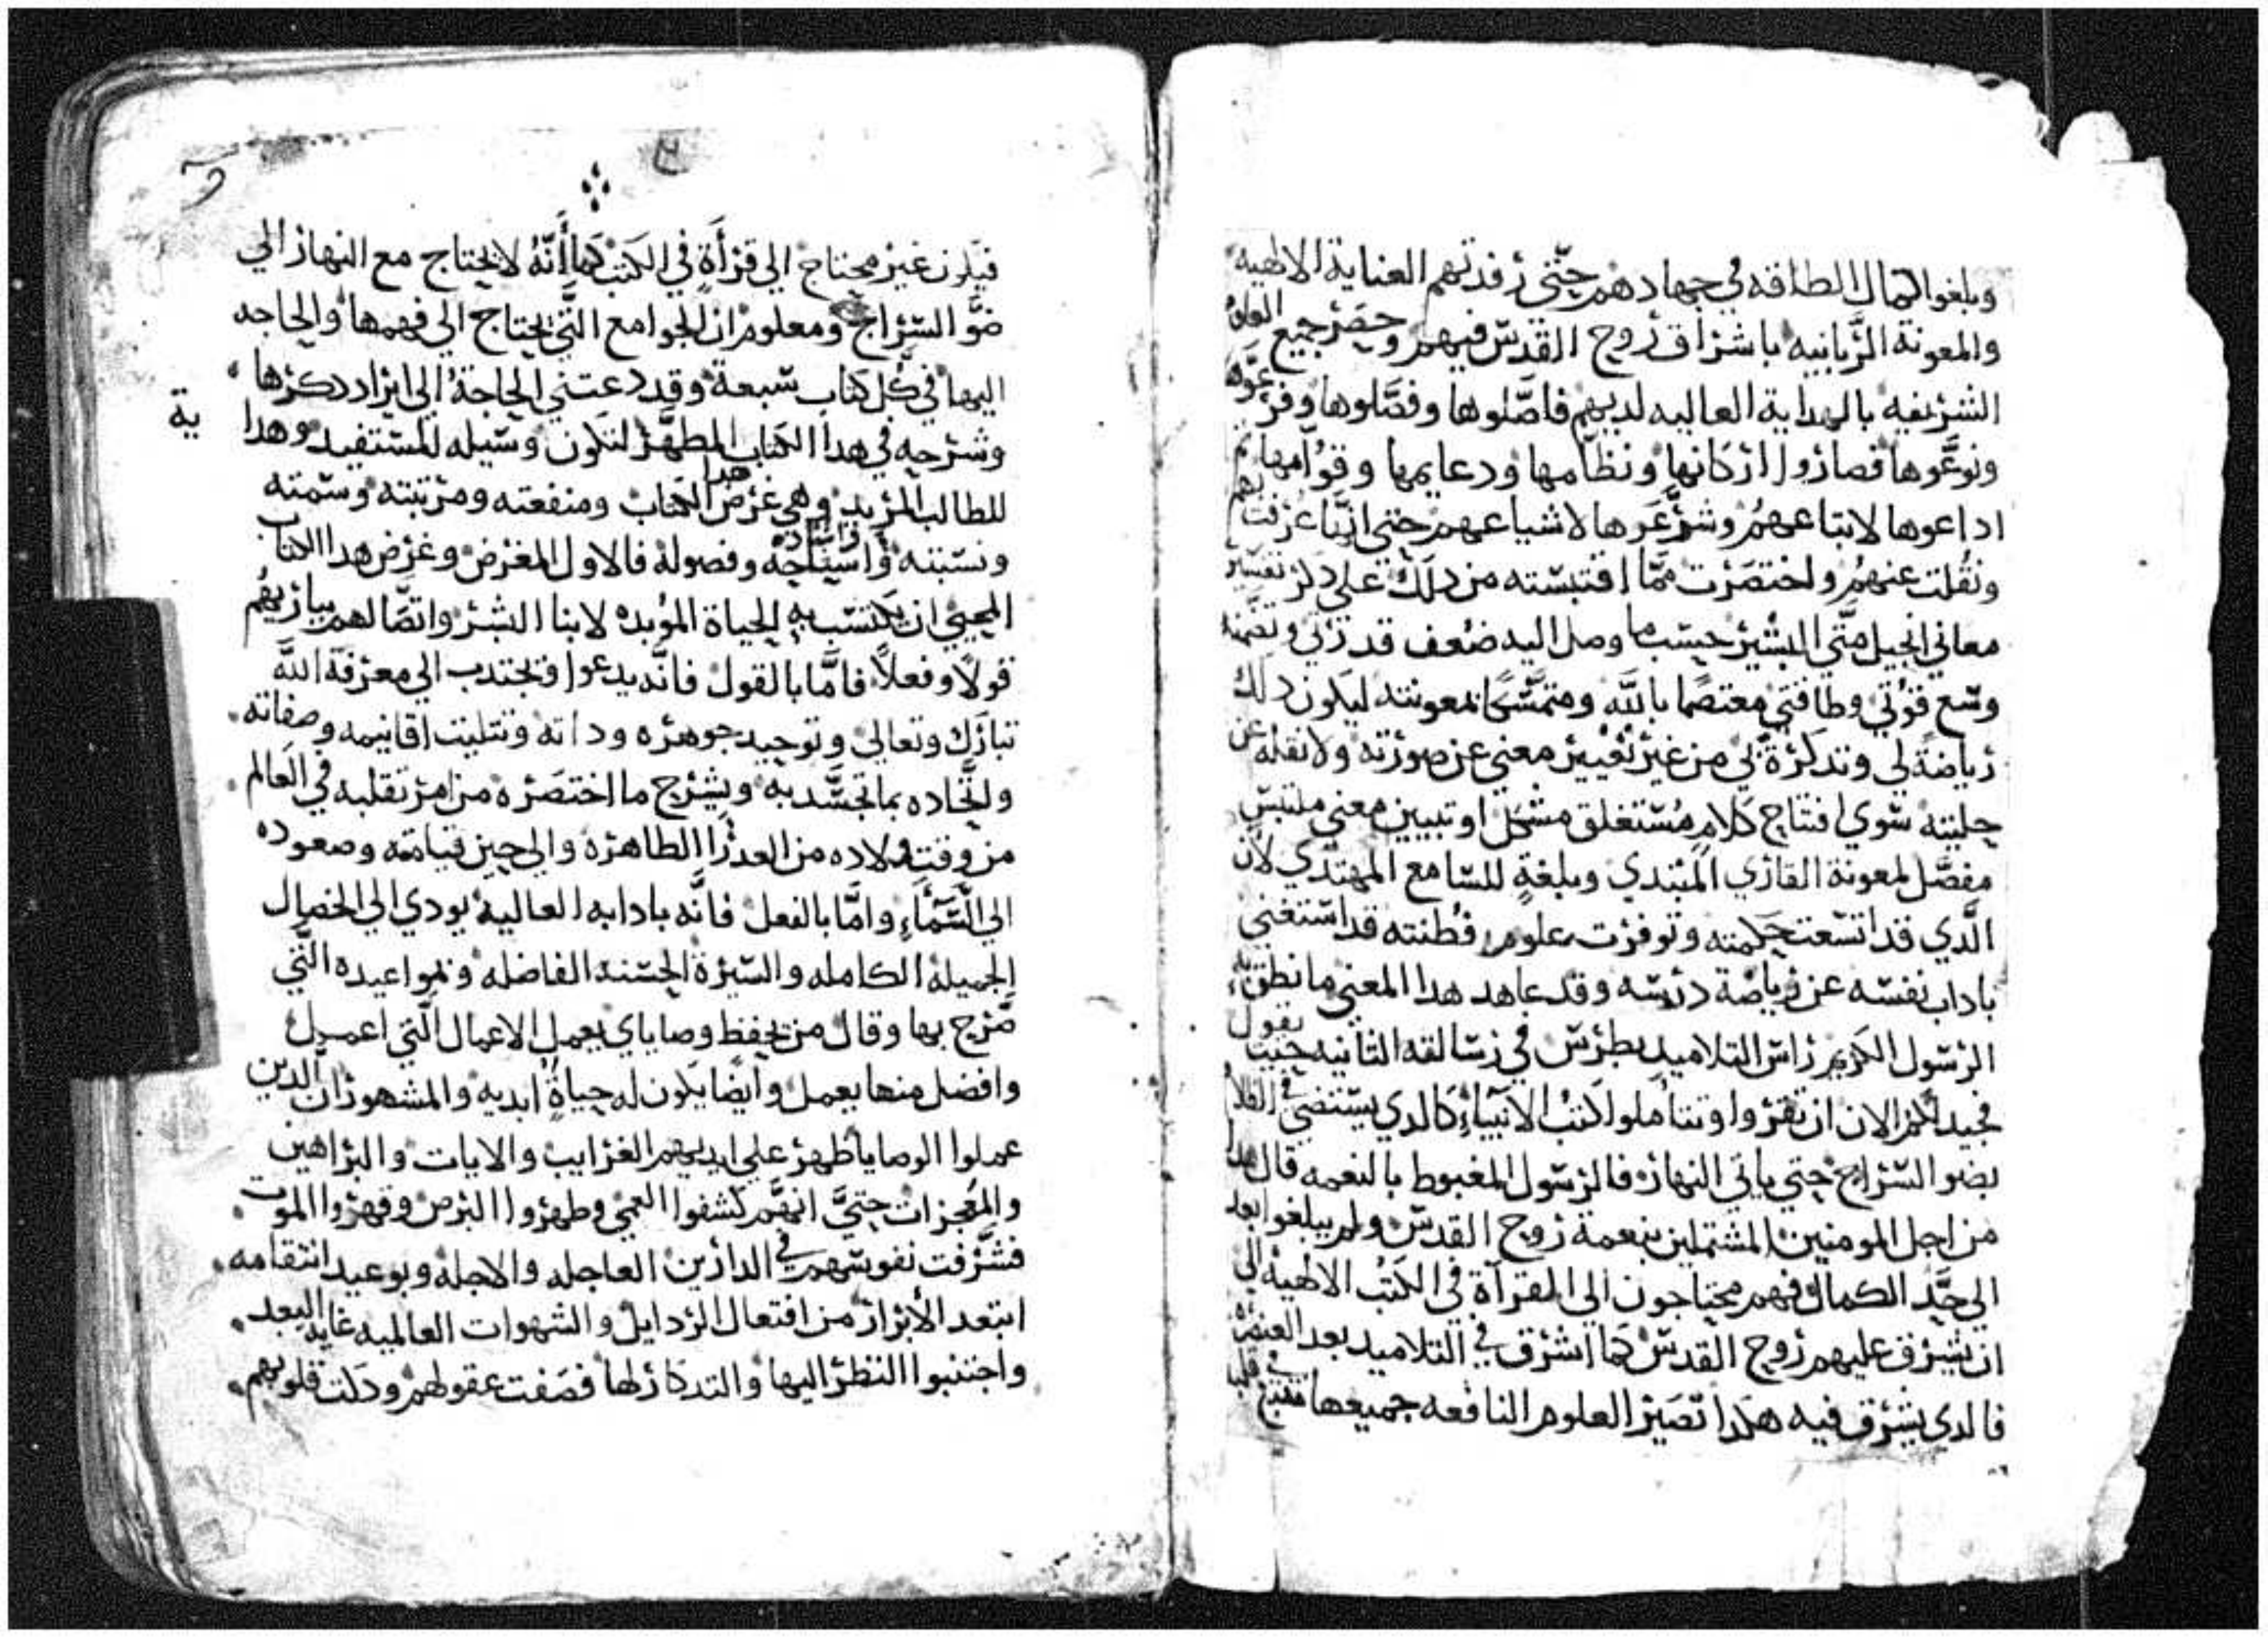 وبلغوا كمال الطاقه في جهادهم حتّي رفدتهم العناية الالهيه
والمعونة الرّبانيه باشراق روح القدس فيهم وحصر جميع العلوم
الشريفه بالهداية العاليه لديهم فاصّلوها وفصّلوها وفرّعوها
ونوعّوها فصاروا اركانها ونظامها ودعايمها وقوّامها ثم
اداعوها لاتباعهم وشرّعوها لاشياعهم حتي انني اعرفت بهم
ونقلت عنهم واختصرت ممّا اقتبسته من دلك علي دكر تفسير
معاني انجيل متّي البشير حسب ما وصل اليه ضعف قدرتي وتضمنه
وسع قوّتي وطاقتي معتصمًا بالله ومتمسّكًا بمعونته ليكون دلك
رياضةً لي وتدكرةً لي من غير تغيير معني عن صورته ولا نقله عن
حليته سوي افتتاح كلامٍ مُستغلق مشكل او تبيين معني ملتبس
مفصّل لمعونة القاري المبتدي وبلغةٍ للسّامع المهتدي لانّ
الّدي قد اتسعت حكمته وتوفرت علوم فطنته قد استغني
باداب نفسه عن رياضة درسه وقد عاهد هدا المعني ما نطق به
الرسول الكريم راس التلاميد بطرس في رسالته التانيه حيت يقول
فجيد لكم الان ان تقروا وتتاملوا كتب الانبياءِ كالدي يستضي في الظلا
بضو السراج حتي ياتي النهار فالرسول المغبوط بالنعمه قال هدا
من اجل المومنين المشتملين بنعمة روح القدس ولم يبلغوا بعد
الي حدّ الكمال فهم محتاجون الي القرآة في الكتب الالهيه الي
ان يشرق عليهم روح القدس كما اشرق في التلاميد بعد العنصرة
فالدي يشرق فيه هكدا تصير العلوم النافعه جميعها تنبع في قلبه
فيكون غير محتاج الي قرأةٍ في الكتب كما أنّهُ لا يحتاج مع النهار الي
ضوّ السّراج ومعلوم ان الجوامع التّي يحتاج الي فهمها والحاجه
اليها في كل كتاب سبعة وقد دعتني الحاجة الي ايراد دكرها
وشرحه في هدا الكتاب المطهّر لتكون وسيله للمستفيد وهداية
للطالب المريد وهي غرض هدا الكتاب ومنفعته ومرتبته وسمته
ونسبته واسناده واستفتاحه وفصوله فالاول الغرض وغرض هدا الكتاب
المحيي ان يكتسب به الحياة المؤبده لابنا البشر واتصّالهم بباريهم
قولًا وفعلًا فامّا بالقول فانّه يدعوا ويجتدب الي معرفة اللّه
تبارك وتعالي وتوحيد جوهره وداته وتتليت اقانيمه وصفاته
واتّحاده بما تجسّد به ويشرح ما اختصره من امر تقلبه في العالم
من وقت ولاده من العدرا الطاهرة والي حين قيامته وصعوده
الي السّمآءِ وامّا بالفعل فانّه بادابه العالية يودي الي الخصال
الجميلة الكامله والسّيرة الحسنة الفاضله وبمواعيده التّي
صّرح بها وقال من يحفظ وصاياي يعمل الاعمال الّتي اعمل
وافضل منها يعمل وايضًا يكون له حياةٌ ابديه والمشهور ان الّدين
عملوا الوصايا ظهر علي ايديهم الغرايب والايات والبراهين
والمعجزات حتيّ انهّم كشفوا العمي وطهروا البرص وقهروا الموت
فشّرفت نفوسهم في الدارين العاجله والاجلة وبوعيد انتقامه
ابتعد الأبرار من افتعال الردايل والشهوات العالميه غاية البعد
واجتنبوا النظر اليها والتدكار لها فصفت عقولهم وذلت قلوبهم